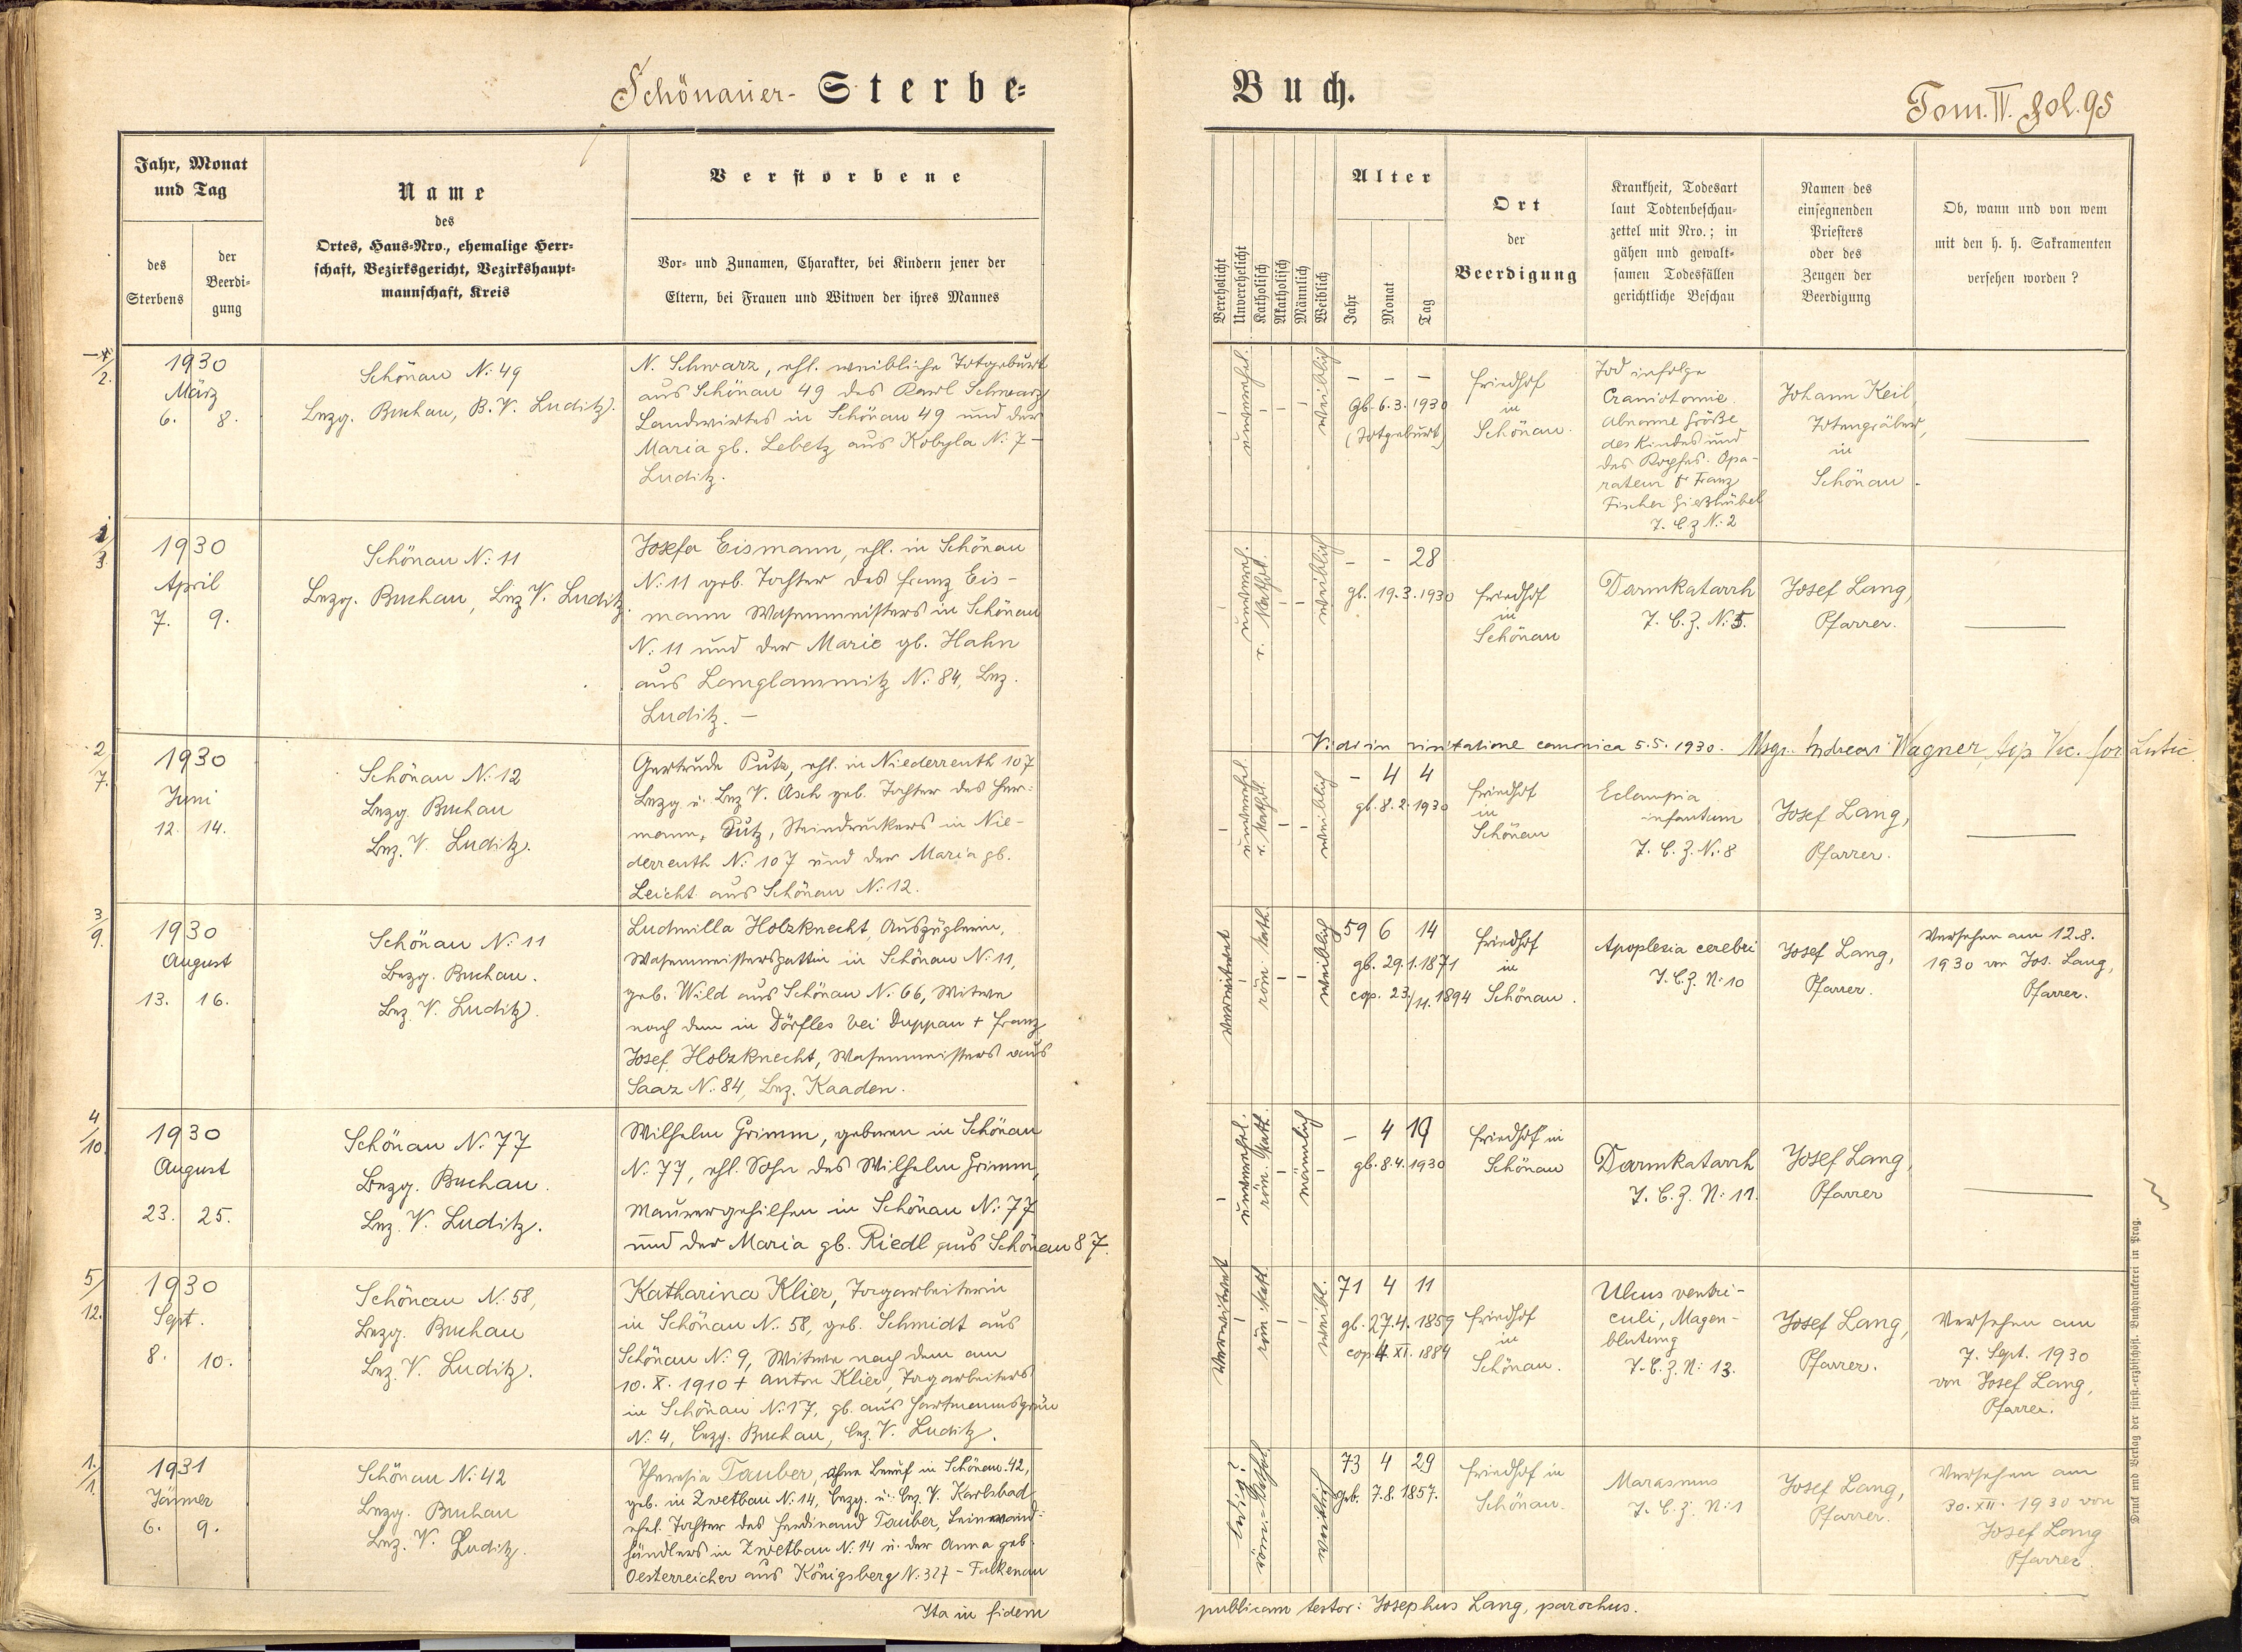 Schönauer- Sterbe=
Jahr, Monat
und Tag
des
Sterbens
der
Beerdi=
gung
Name
des
Ortes, Haus=Nro., ehemalige Herr=
schaft, Bezirksgericht, Bezirkshaupt=
mannschaft, Kreis
Verstorbene
Vor= und Zunamen, Charakter, bei Kindern jener der
Eltern, bei Frauen und Witwen der ihres Mannes
2.
1930
März
6. 8.
Schönau N: 49
Bezg. Buchau, B. V. Luditz.
N. Schwarz, ehl. weibliche Totgeburt
aus Schönau 49 des Karl Schwarz
Landwirtes in Schönau 49 und der
Maria gb. Lebetz aus Kobyla N: 7 –
Luditz.
1/3.
1930
April
7. 9.
Schönau N: 11
Bezg. Buchau, Bez V. Luditz.
Josefa Eismann, ehl. in Schönau
N: 11 geb. Tochter des Franz Eis-
mann Wasenmeisters in Schönau
N: 11 und der Marie gb. Hahn
aus Langlammitz N: 84, Bez.
Luditz. –
2/7.
1930
Juni
12. 14.
Schönau N: 12
Bezg. Buchau
Bez. V. Luditz.
Gertrude Putz, ehl. in Niederreuth 107
Bezg u. Bez V. Asch geb. Tochter des Her=
mann Putz, Steindruckers in Nie-
derreuth N: 107 und der Maria gb.
Leicht aus Schönau N: 12.
3/9.
1930
August
13. 16.
Schönau N: 11
Bezg. Buchau.
Bez. V. Luditz.
Ludmilla Holzknecht, Auszüglerin,
Wasenmeistersgattin in Schönau N: 11,
geb. Wild aus Schönau N: 66, Witwe
nach dem in Dörfles bei Duppau + Franz
Josef Holzknecht, Wasenmeisters aus
Saaz N: 84, Bez. Kaaden.
4/10.
1930
August
23. 25.
Schönau N: 77
Bezg. Buchau.
Bez. V. Luditz.
Wilhelm Grimm, geboren in Schönau
N: 77, ehl. Sohn des Wilhelm Grimm,
Maurergehilfen in Schönau N: 77
und der Maria gb. Riedl aus Schönau 87.
5/12.
1930
Sept.
8. 10.
Schönau N: 58,
Bezg. Buchau
Bez. V. Luditz.
Katharina Klier, Tagarbeiterin
in Schönau N: 58, geb. Schmidt aus
Schönau N: 9, Witwe nach dem am
10. X. 1910 + Anton Klier, Tagarbeiters
in Schönau N: 17, gb. aus Hartmannsgrün
N: 4, Bezg. Buchau, Bez. V. Luditz.
1./1.
1931
Jänner
6. 9.
Schönau N: 42
Bezg. Buchau
Bez. V. Luditz.
Theresia Tauber, ohne Beruf in Schönau 42,
geb. in Zwetbau N: 14, Bezg. u. Bez. V. Karlsbad
ehel. Tochter des Ferdinand Tauber, Leinwand=
händlers in Zwetbau N: 14 u. der Anna geb.
Oesterreicher aus Königsberg N: 327 – Falkenau
Ita in fidem
Buch.
Tom. IV. Fol. 95
Verehelicht
Unverehelicht
Katholisch
Akatholisch
Männlich
Weiblich
Alter
Jahr
Monat
Tag
Ort
der
Beerdigung
Krankheit, Todesart
laut Todtenbeschau=
zettel mit Nro.; in
gähen und gewalt=
samen Todesfällen
gerichtliche Beschau
Namen des
einsegnenden
Priesters
oder des
Zeugen der
Beerdigung
Ob, wann und von wem
mit den h. h. Sakramenten
versehen worden?
– unverehel. – – – weiblich
– – –
Gb. 6. 3. 1930
(Totgeburt)
Friedhof
in
Schönau.
Tod infolge
Craniotomie.
Abnorme Größe
des Kindes und
des Kopfes. Opa-
rateur Dr Franz
Fischer Gießhübel
T. B. Z N: 2
Johann Keil,
Totengräber,
in
Schönau.
– unvereh. r. kathol. – – weiblich
– – 28
gb. 19. 3. 1930
Friedhof
in
Schönau
Darmkatarrh
T. B. Z. N: 5.
Josef Lang,
Pfarrer.
Vidi in visitatione canonica 5. 5. 1930. Msgr. Andreas Wagner,
– unverehel. r. kathol. – – weiblich
– 4 4
gb. 8. 2. 1930
Friedhof
in
Schönau
Eclampia
infantum
T. B. Z. N: 8
Josef Lang,
Pfarrer.
verwitwet – röm. kath. – – weiblich
59 6 14
gb. 29. 1. 1871
cop. 23./11. 1894
Friedhof
in
Schönau.
Apoplexia cerebri
T. B. Z. N: 10
Josef Lang,
Pfarrer.
Versehen am 12. 8.
1930 von Jos. Lang,
Pfarrer.
– unverehel. röm. kath. – männlich –
– 4 19
gb. 8. 4. 1930
Friedhof in
Schönau
Darmkatarrh
T. B. Z. N: 11.
Josef Lang,
Pfarrer
verwitwet – röm. kath. – – weibl.
71 4 11
gb. 27. 4. 1859
cop. 4. XI. 1884
Friedhof
in
Schönau.
Ulcus ventri-
culi, Magen-
blutung
T. B. Z. N: 13.
Josef Lang,
Pfarrer.
Versehen am
7. Sept. 1930
von Josef Lang,
Pfarrer.
ledig röm.=kathol. weiblich
73 4 29
geb. 7. 8. 1857.
Friedhof in
Schönau.
Marasmus
T. B. Z. N: 1
Josef Lang,
Pfarrer.
Versehen am
30. XII. 1930 von
Josef Lang
Pfarrer.
publicam testor: Josephus Lang, parochus.
Druck und Verlag der fürst.=erzbischöfl. Buchdruckerei in Prag.